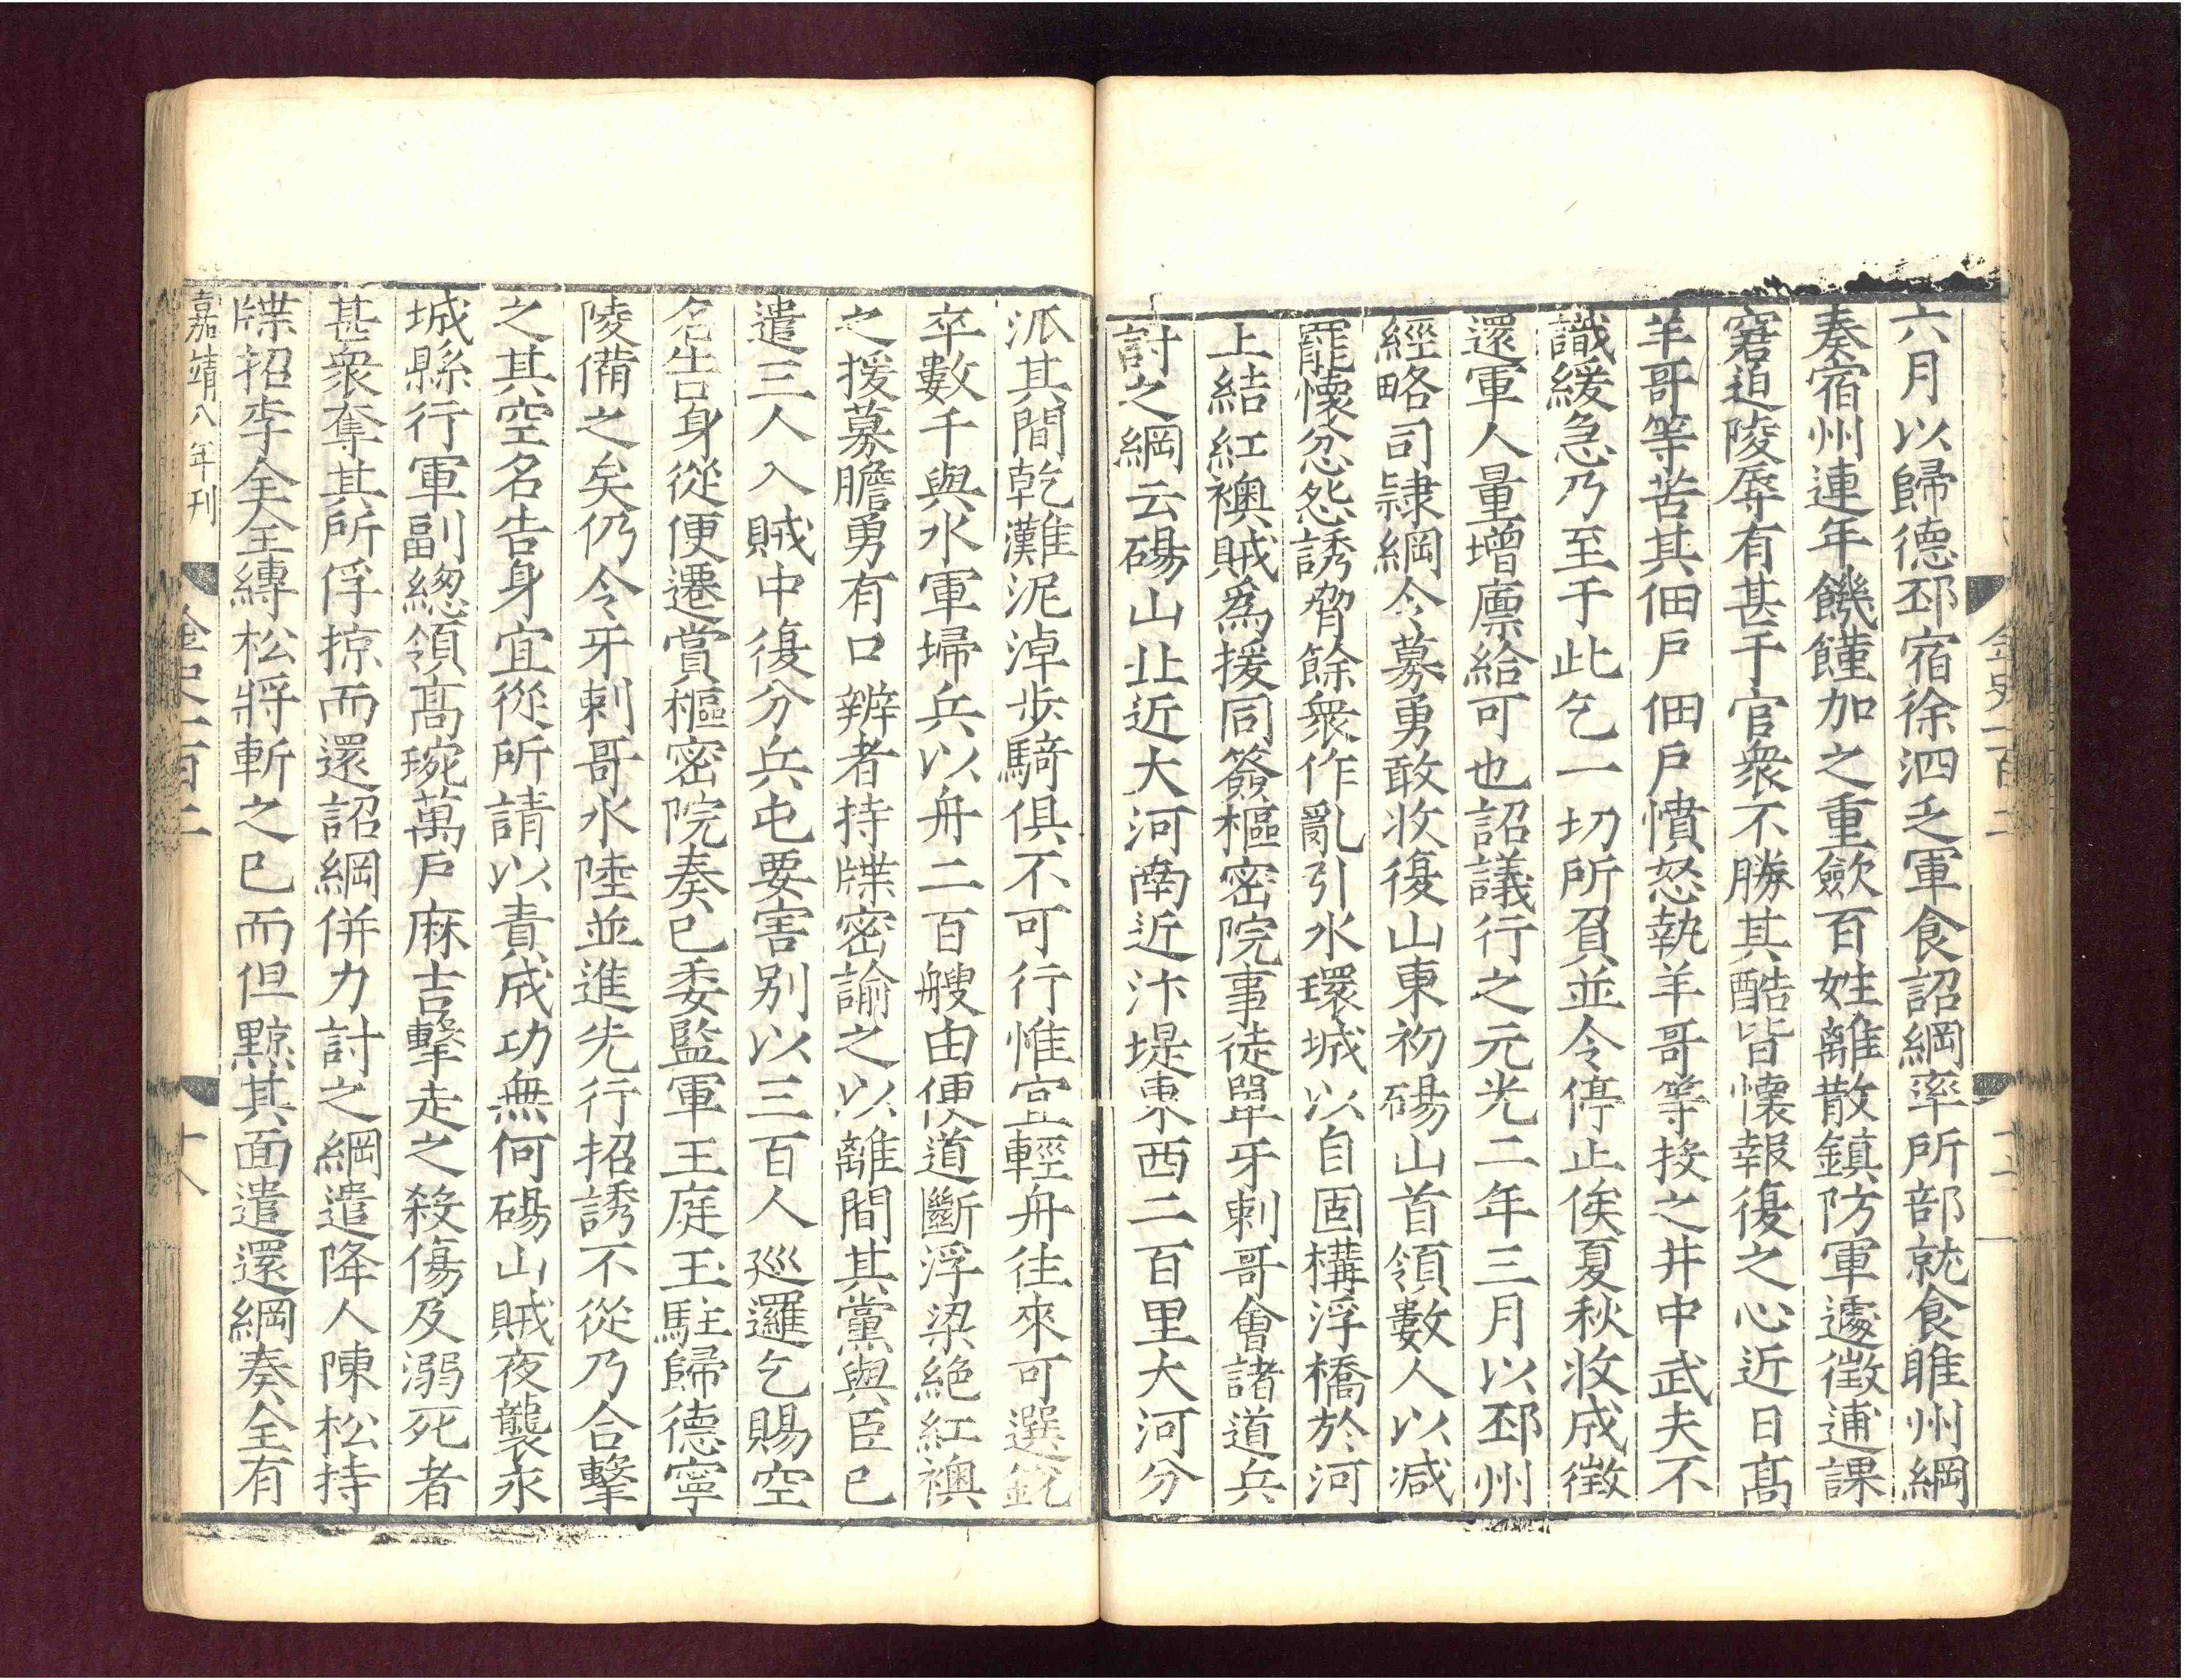 六月以歸德邳宿徐泗乏軍食詔綱率所部就食睢州綱
奏宿州連年饑饉加之重歛百姓離散鎮防軍遽徵逋課
窘迫陵辱有甚于官衆不勝其酷皆懷報復之心近日髙
羊哥等苦其佃戶佃戶憤怒執羊哥等投之井中武夫不
識緩急乃至于此乞一切所負並令停止俟夏秋收成徵
還軍人量增廪給可也詔議行之元光二年三月以邳州
經略司隷綱令募勇敢收復山東初碭山首領數人以减
罷懷忿怨誘脅餘衆作亂引水環城以自固構浮橋於河
上結紅襖賊為援同簽樞密院事徒單牙剌哥會諸道兵
討之綱云碭山北近大河南近汴堤東西二百里大河分
派其間乾灘泥淖步騎俱不可行惟宜輕舟往來可選銳
卒數千與水軍埽兵以舟二百艘由便道斷浮梁絶紅襖
之援募膽勇有口辨者持牒密諭之以離間其黨與臣已
遣三人入賊中復分兵屯要害别以三百人巡邏乞賜空
名告身從便遷賞樞密院奏已委監軍王庭玉駐歸德寧
陵備之矣仍令牙剌哥水陸並進先行招誘不從乃合擊
之其空名告身宜從所請以責成功無何碭山賊夜襲永
城縣行軍副緫領髙琬萬戶麻吉擊走之殺傷及溺死者
甚衆奪其所俘掠而還詔綱併力討之綱遣降人陳松持
牒招李全全縛松將斬之已而但黥其面遣還綱奏全有
嘉靖八年刊
金史一百二
十八